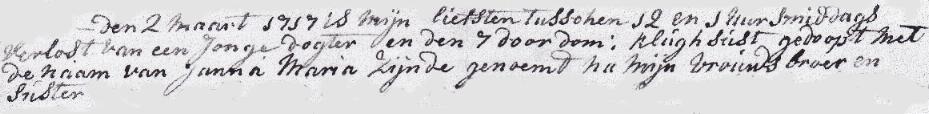 den 2 maart 1717 is mijn liefsten tusschen 12 en 1 uur smiddags
Verlost van een Jonge dogter en den 7 door dom: klughsist gedoopt met
de naam van Janna Maria Zijnde genoemd na mijn vrouws broer en
suster